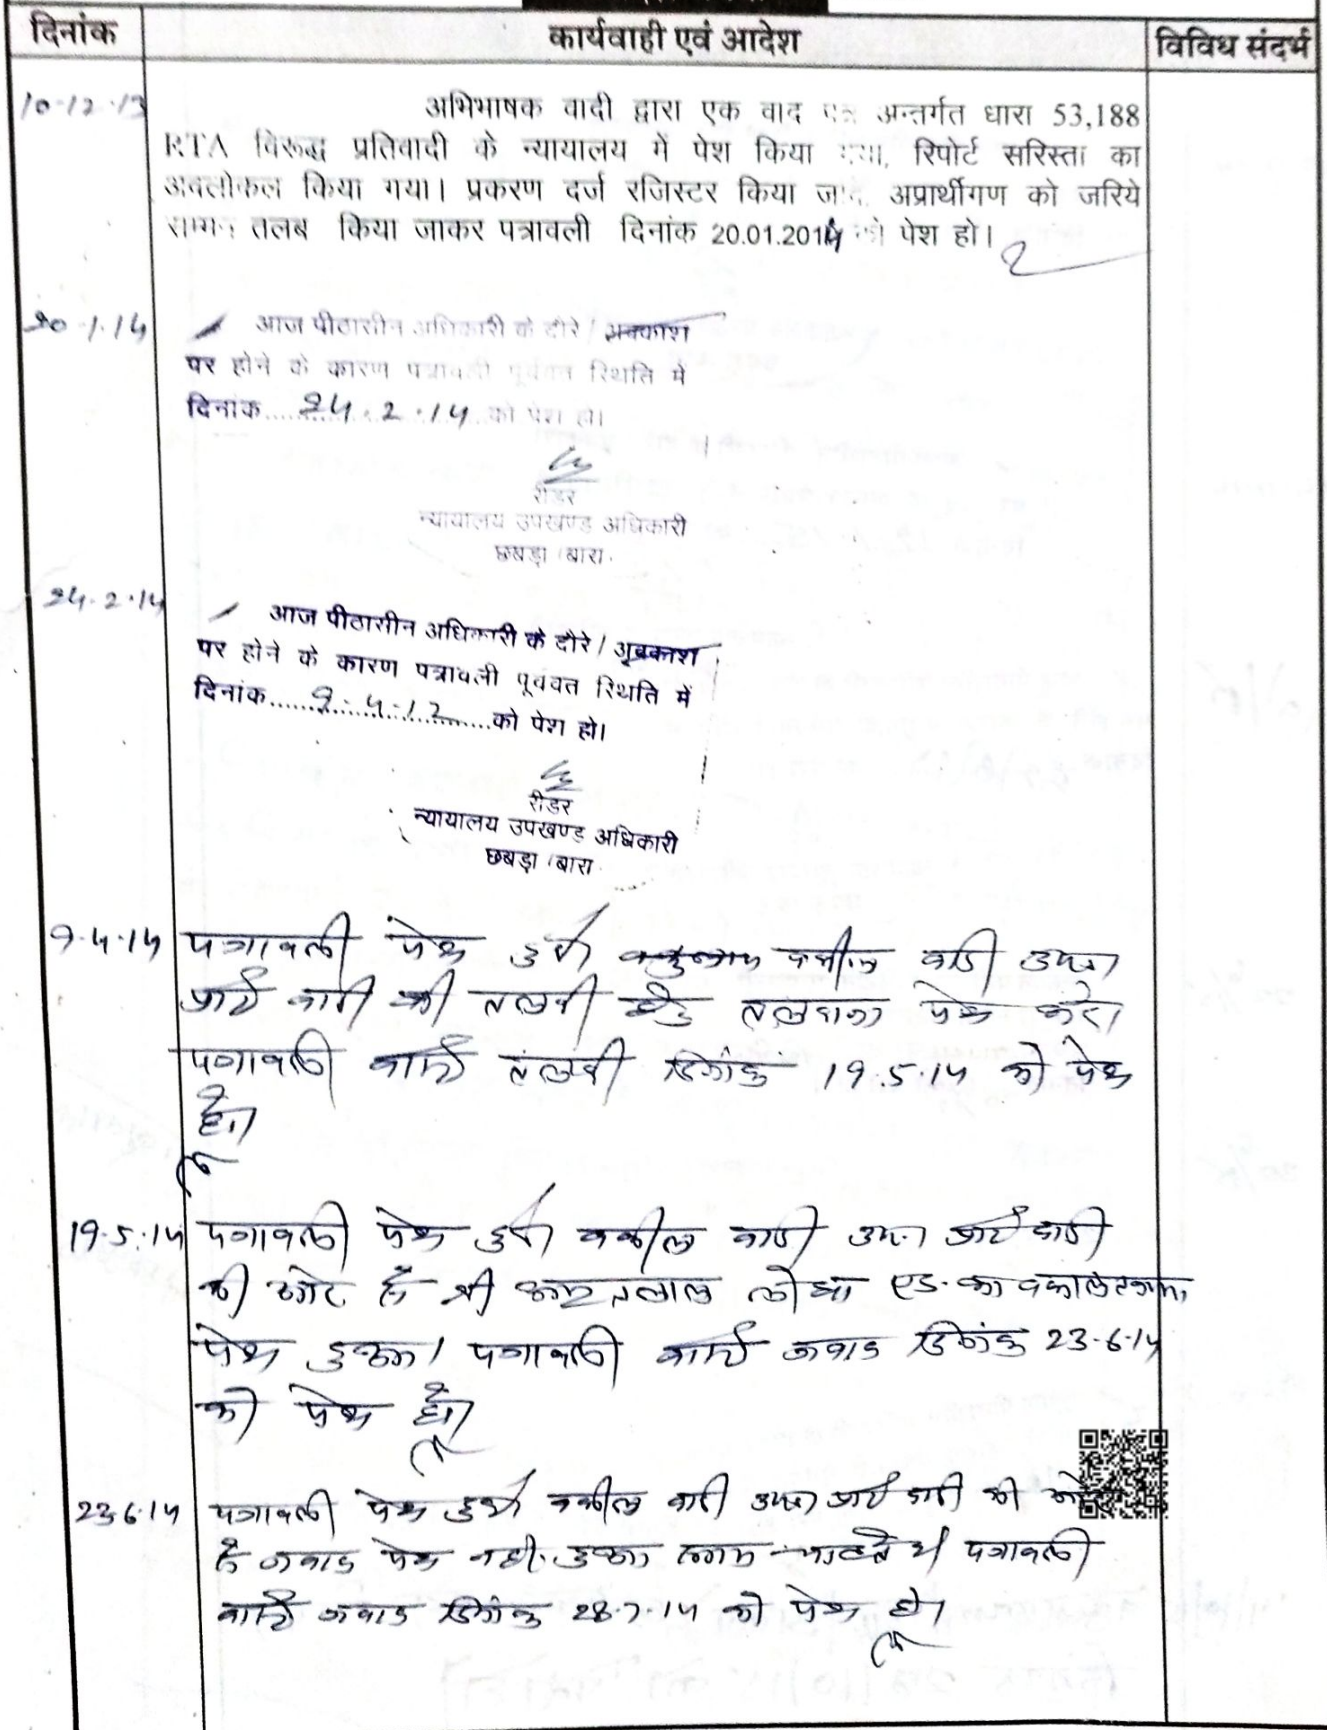 दिनांक कार्यवाही एवं आदेश विविध संदर्भ
10-12-13 अभिभाषक वादी द्वारा एक वाद पत्र अन्तर्गत धारा 53,188
RTA विरूद्ध प्रतिवादी के न्यायालय में पेश किया गया, रिपोर्ट सरिस्ता का
अवलोकल किया गया। प्रकरण दर्ज रजिस्टर किया जावे, अप्रार्थीगण को जरिये
सम्मन तलब किया जाकर पत्रावली दिनांक 20.01.2014 को पेश हो।
20-1-14 आज पीठासीन अधिकारी के दौरे / अवकाश
पर होने के कारण पत्रावली पूर्ववत स्थिति में
दिनांक 24.2.14 को पेश हो।
रीडर
न्यायालय उपखण्ड अधिकारी
छबड़ा बारा
24.2.14 आज पीठासीन अधिकारी के दौरे / अवकाश
पर होने के कारण पत्रावली पूर्ववत स्थिति में
दिनांक 9-4-12 को पेश हो।
रीडर
न्यायालय उपखण्ड अधिकारी
छबड़ा बारा
9.4.14 पत्रावली पेश हुई वकील वादी उप०
वादी की तलबी हेतु तलबाना पेश करे।
पत्रावली वास्ते तलबी दिनांक 19.5.14 को पेश
हो।
19.5.14 पत्रावली पेश हुई वकील वादी उप०
की ओर से श्री लोधा एड. का वकालतनामा
पेश हुआ। पत्रावली वास्ते जवाब दिनांक 23-6-14
को पेश हो।
23.6.14 पत्रावली पेश हुई वकील वादी उप० की ओर
से जवाब पेश नहीं हुआ समय चाहते है। पत्रावली
वास्ते जवाब दिनांक 28.7.14 को पेश हो।